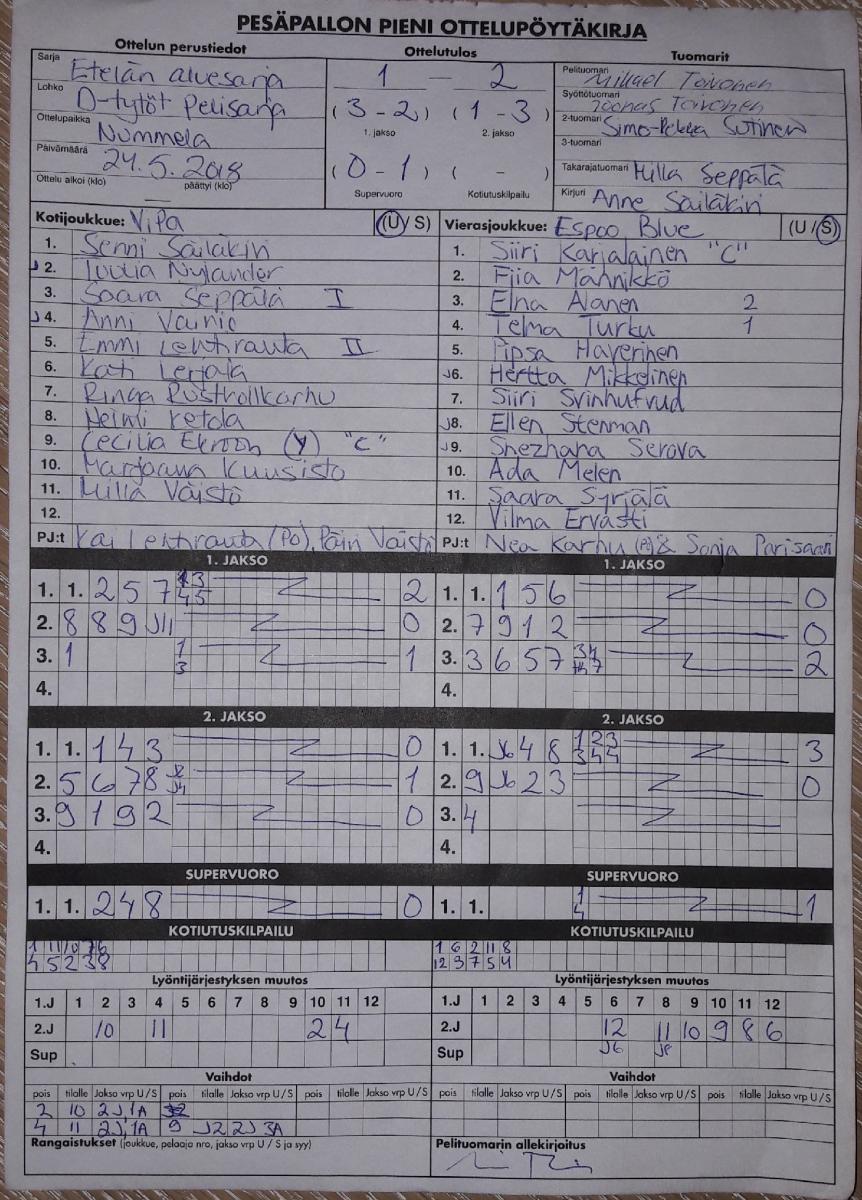 PESÄPALLON PIENI OTTELUPÖYTÄKIRJA
Ottelun perustiedot Ottelutulos Tuomarit
Sarja Etelän aluesarja
Lohko D-tytöt Pelisarja
Ottelupaikka Nummela
Päivämäärä 24.5.2018
Ottelu alkoi (klo) — päättyi (klo)
1 — 2
(3 - 2) (1 - 3)
1. jakso 2. jakso
(0 - 1) ( - )
Supervuoro Kotiutuskilpailu
Pelituomari Mikael Toivonen
Syöttötuomari Joonas Toivonen
2-tuomari Simo-Pekka Sutinen
3-tuomari
Takarajatuomari Milla Seppälä
Kirjuri Anne Säiläkivi
Kotijoukkue: ViPa (U / S)
1. Senni Säiläkivi
J 2. Tuulia Nylander
3. Saara Seppälä I
J 4. Anni Vainio
5. Emmi Lehtirauta II
6. Kati Lerjala
7. Ringa
8. Heimi Ketola
9. Cecilia Ekroon (Y) "C"
10. Marjaana Kuusisto
11. Milla Väistö
12.
PJ:t Kai Lehtirauta (Po), Päivi Väistö
Vierasjoukkue: Espoo Blue (U / S)
1. Siiri Karjalainen "C"
2. Fiia Männikkö
3. Elna Alanen 2
4. Telma Turku 1
5. Pipsa Haverinen
J6. Hertta Mikkelinen
7. Siiri Svinhufvud
J8. Ellen Stenman
J9. Snezhana Serova
10. Ada Melen
11. Saara Syrjälä
12. Vilma Ervasti
PJ:t Nea Karhu & Sonja Parisaari
1. JAKSO
1. 1. 2 5 7 13 45 2
2. 8 8 9 J11 0
3. 1 1 3 1
4.
1. JAKSO
1. 1. 1 5 6 0
2. 7 9 1 2 0
3. 3 6 5 7 34 2
4.
2. JAKSO
1. 1. 1 4 3 0
2. 5 6 7 8 J2 J4 1
3. 9 1 9 2 0
4.
2. JAKSO
1. 1. J6 4 8 123 344 3
2. 9 J6 2 3 0
3. 4
4.
SUPERVUORO
1. 1. 2 4 8 0
SUPERVUORO
1. 1. 1 4 1
KOTIUTUSKILPAILU
1 11 10 7 6
4 5 2 3 8
KOTIUTUSKILPAILU
1 6 2 11 8
12 3 7 5 4
Lyöntijärjestyksen muutos
1.J 1 2 3 4 5 6 7 8 9 10 11 12
2.J 10 11 2 4
Sup
Lyöntijärjestyksen muutos
1.J 1 2 3 4 5 6 7 8 9 10 11 12
2.J 12 11 10 9 8 6
Sup J6 J8
Vaihdot
pois tilalle Jakso vrp U / S pois tilalle Jakso vrp U / S pois tilalle Jakso vrp U / S
2 10 2J,1A
4 11 2J,1A 9 J2 2J 3A
Vaihdot
pois tilalle Jakso vrp U / S pois tilalle Jakso vrp U / S pois tilalle Jakso vrp U / S
Rangaistukset (joukkue, pelaaja nro, jakso vrp U / S ja syy)
Pelituomarin allekirjoitus